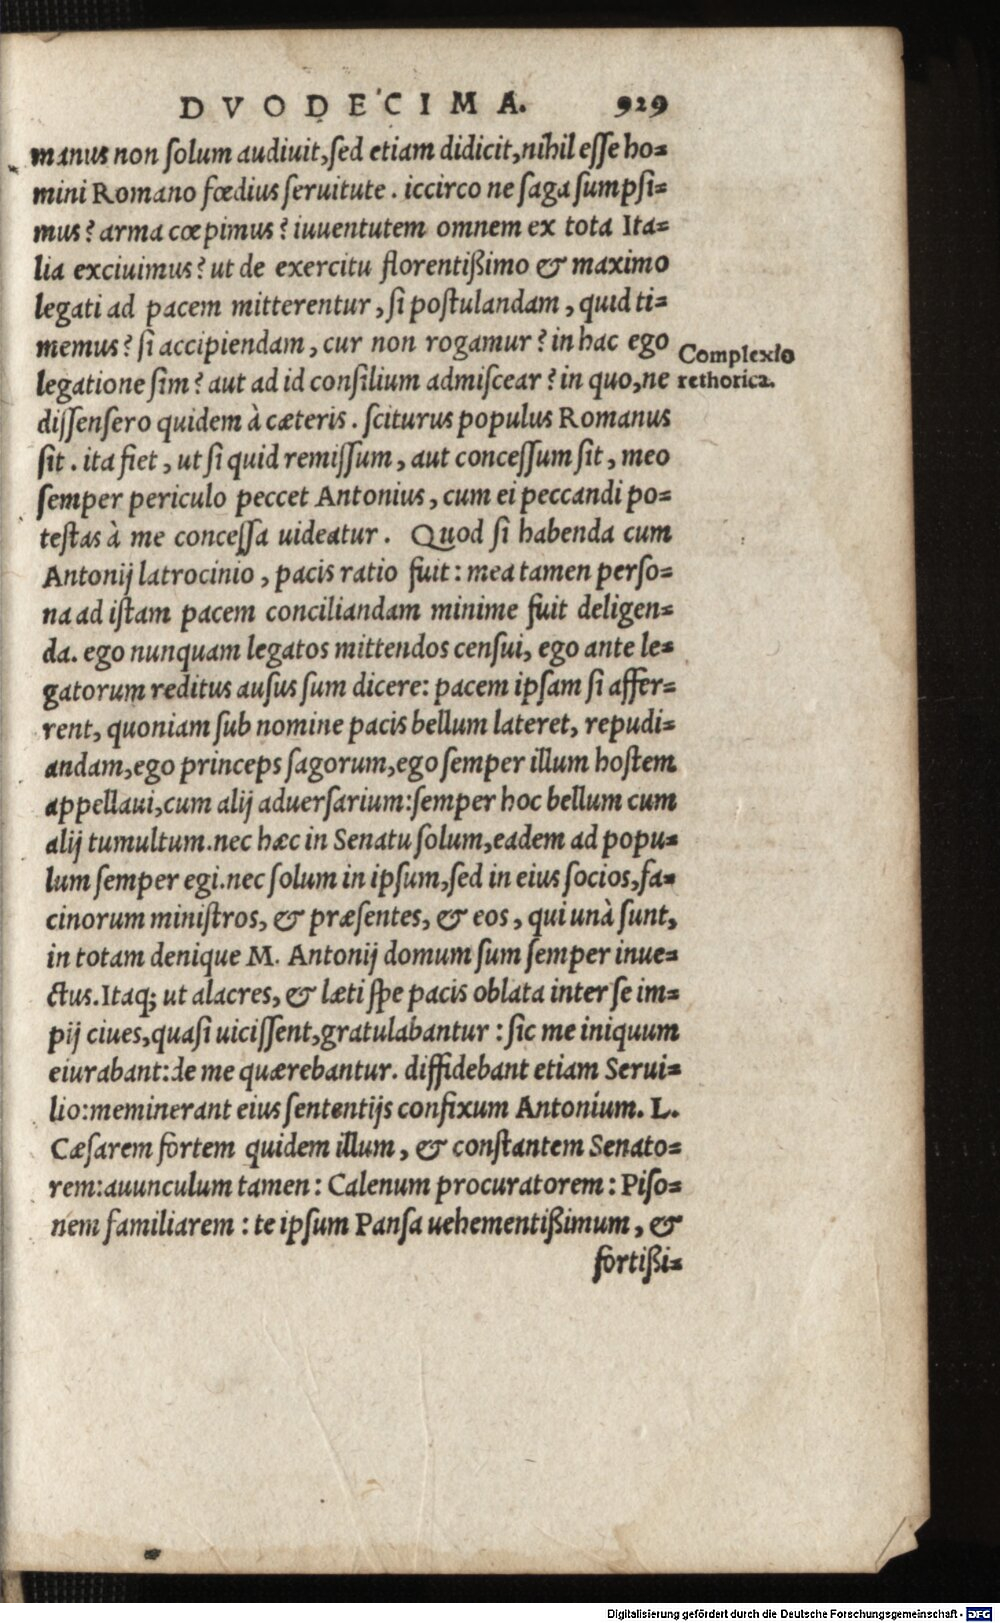 DVODECIMA. 929
manus non ſolum audiuit, ſed etiam didicit, nihil eſſe ho=
mini Romano fœdius ſeruitute. iccirco ne ſaga ſumpſi=
mus? arma cœpimus? iuuentutem omnem ex tota Ita=
lia exciuimus? ut de exercitu florentißimo & maximo
legati ad pacem mitterentur, ſi poſtulandam, quid ti=
memus? ſi accipiendam, cur non rogamur? in hac ego
Complexio
legatione ſim? aut ad id conſilium admiſcear? in quo, ne
rethorica.
diſſenſero quidem à cæteris. ſciturus populus Romanus
ſit. ita fiet, ut ſi quid remiſſum, aut conceſſum ſit, meo
ſemper periculo peccet Antonius, cum ei peccandi po=
teſtas à me conceſſa uideatur. Quod ſi habenda cum
Antonij latrocinio, pacis ratio fuit: mea tamen perſo=
na ad iſtam pacem conciliandam minime fuit deligen=
da. ego nunquam legatos mittendos cenſui, ego ante le=
gatorum reditus auſus ſum dicere: pacem ipſam ſi affer=
rent, quoniam ſub nomine pacis bellum lateret, repudi=
andam, ego princeps ſagorum, ego ſemper illum hoſtem
appellaui, cum alij aduerſarium: ſemper hoc bellum cum
alij tumultum. nec hæc in Senatu ſolum, eadem ad popu=
lum ſemper egi. nec ſolum in ipſum, ſed in eius ſocios, fa=
cinorum miniſtros, & præſentes, & eos, qui unà ſunt,
in totam denique M. Antonij domum ſum ſemper inue=
ctus. Itaq; ut alacres, & læti ſpe pacis oblata inter ſe im=
pij ciues, quaſi uiciſſent, gratulabantur: ſic me iniquum
eiurabant: de me quærebantur. diffidebant etiam Serui=
lio: meminerant eius ſententijs confixum Antonium. L.
Cæſarem fortem quidem illum, & conſtantem Senato=
rem: auunculum tamen: Calenum procuratorem: Piſo=
nem familiarem: te ipſum Panſa uehementißimum, &
fortißi=
Digitalisierung gefördert durch die Deutsche Forschungsgemeinschaft - DFG